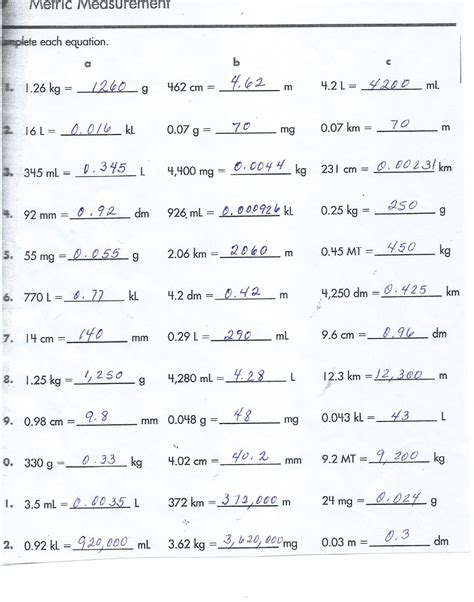 Metric Measurement
complete each equation.
a b c
1. 1.26 kg = 1260 g 462 cm = 4.62 m 4.2 L = 4200 mL
2. 16 L = 0.016 kL 0.07 g = 70 mg 0.07 km = 70 m
3. 345 mL = 0.345 L 4,400 mg = 0.0044 kg 231 cm = 0.00231 km
4. 92 mm = 0.92 dm 926 mL = 0.000926 kL 0.25 kg = 250 g
5. 55 mg = 0.055 g 2.06 km = 2060 m 0.45 MT = 450 kg
6. 770 L = 0.77 kL 4.2 dm = 0.42 m 4,250 dm = 0.425 km
7. 14 cm = 140 mm 0.29 L = 290 mL 9.6 cm = 0.96 dm
8. 1.25 kg = 1,250 g 4,280 mL = 4.28 L 12.3 km = 12,300 m
9. 0.98 cm = 9.8 mm 0.048 g = 48 mg 0.043 kL = 43 L
0. 330 g = 0.33 kg 4.02 cm = 40.2 mm 9.2 MT = 9,200 kg
1. 3.5 mL = 0.0035 L 372 km = 372,000 m 24 mg = 0.024 g
2. 0.92 kL = 920,000 mL 3.62 kg = 3,620,000 mg 0.03 m = 0.3 dm